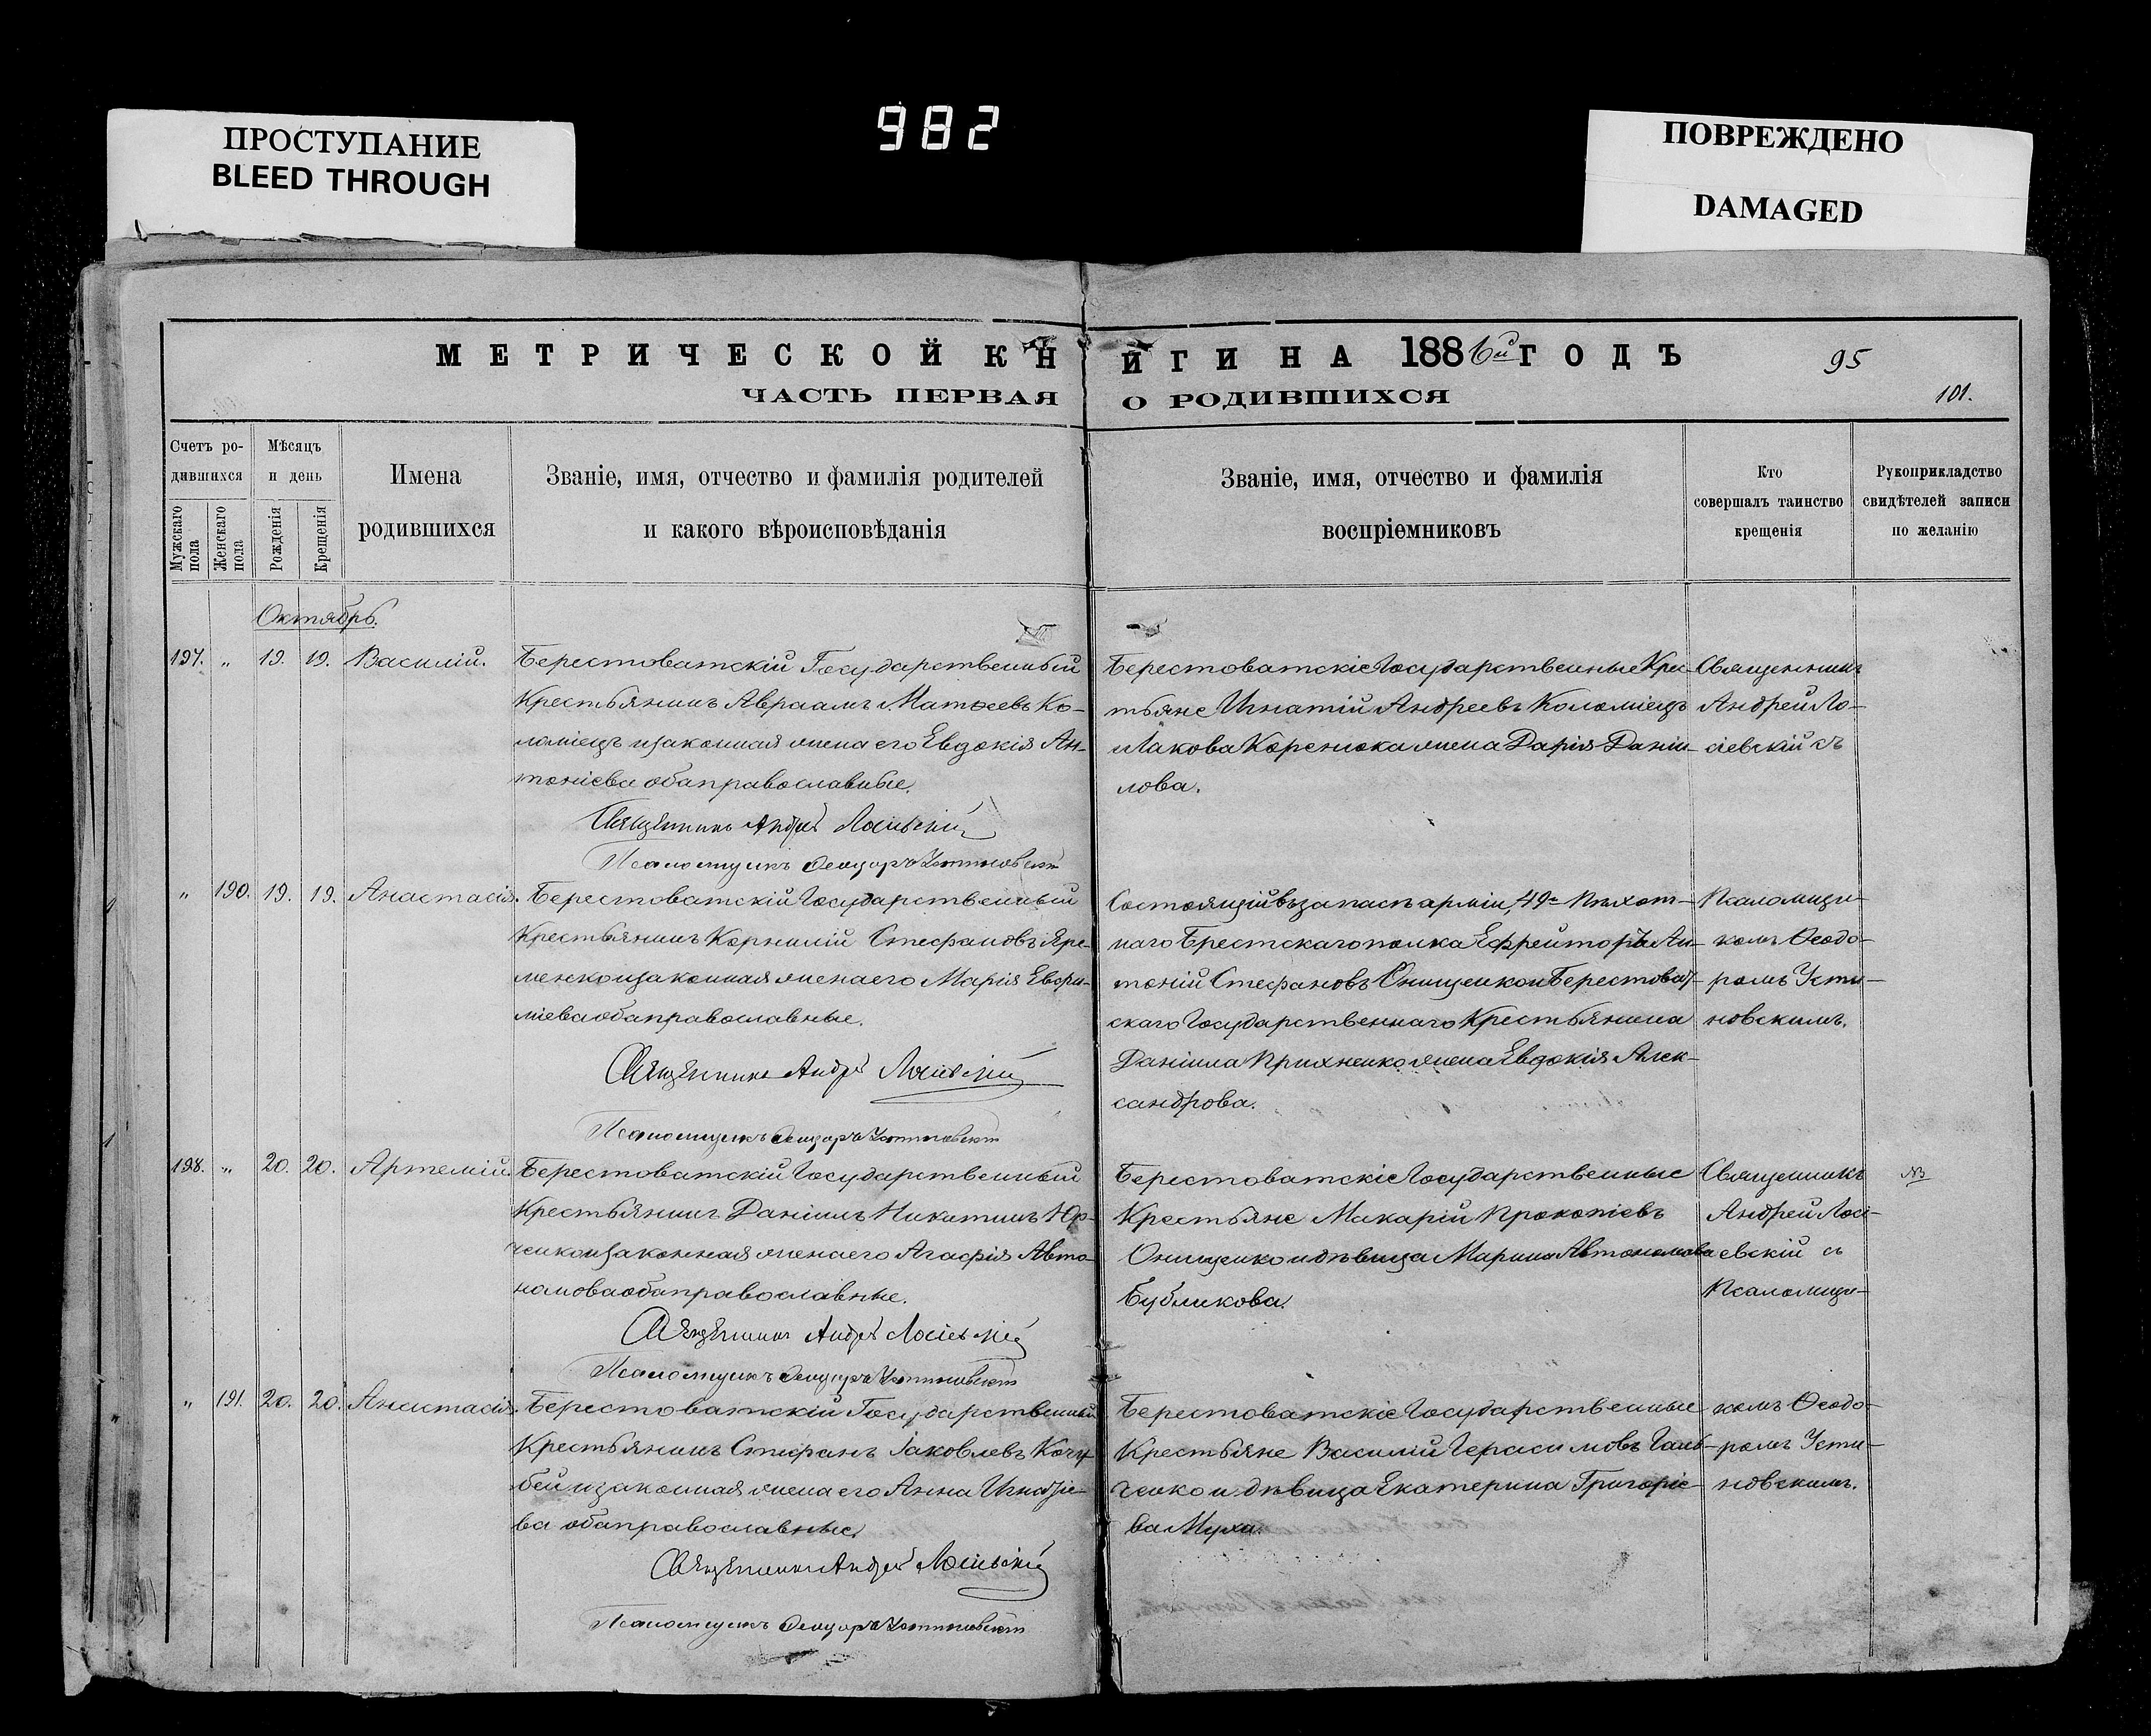 ПРОСТУПАНИЕ
BLEED THROUGH
982
ПОВРЕЖДЕНО
DAMAGED
МЕТРИЧЕСКОЙ КНИГИ НА 1886й ГОДЪ
95
ЧАСТЬ ПЕРВАЯ О РОДИВШИХСЯ
101.
Счетъ ро-
дившихся
Мужскаго пола
Женскаго пола
Мѣсяцъ
и день
Рожденія
Крещенія
Имена
родившихся
Званіе, имя, отчество и фамилія родителей
и какого вѣроисповѣданія
Званіе, имя, отчество и фамилія
воспріемниковъ
Кто
совершалъ таинство
крещенія
Рукоприкладство
свидѣтелей записи
по желанію
Октябрь.
197. " 19. 19. Василій.
Берестоватскій Государственный
Крестьянинъ Авраамъ Матѳеевъ Ко-
ломіецъ и законная жена его Евдокія Ан-
тоніева оба православные.
Священникъ Андрей Лосіевскій
Псаломщикъ Ѳеодоръ Устиновскій
Берестоватскіе Государственные Крес-
тьяне Игнатій Андреевъ Коломіецъ
и Іакова Коренюка жена Дарія Даніи-
лова.
Священникъ
Андрей Ло-
сіевскій съ
" 190. 19. 19. Анастасія.
Берестоватскій Государственный
Крестьянинъ Корнилій Стефановъ Яре-
менко и законная жена его Мария Евѳи-
міева оба православные.
Священникъ Андрей Лосіевскій
Псаломщикъ Ѳеодоръ Устиновскій
Состоящій въ запасѣ арміи, 49го Пѣхот-
наго Брестскаго полка Ефрейторъ Ан-
тоній Стефановъ Онищенко и Берестоват-
скаго Государственнаго Крестьянина
Даніила жена Евдокія Алек-
сандрова.
Псаломщи-
комъ Ѳеодо-
ромъ Усти-
новскимъ.
198. " 20. 20. Артемій.
Берестоватскій Государственный
Крестьянинъ Даніилъ Никитинъ Юр-
ченко и законная жена его Агафія Авто-
номова оба православные.
Священникъ Андрей Лосіевскій
Псаломщикъ Ѳеодоръ Устиновскій
Берестоватскіе Государственные
Крестьяне Макарій Прокопіевъ
Онищенко и дѣвица Марина Автономова
Бубликова.
Священникъ
Андрей Лосі-
евскій съ
Псаломщи-
" 191. 20. 20. Анастасія.
Берестоватскій Государственный
Крестьянинъ Стефанъ Іаковлевъ Кочу-
бей и законная жена его Анна Игнатіе-
ва оба православные.
Священникъ Андрей Лосіевскій
Псаломщикъ Ѳеодоръ Устиновскій
Берестоватскіе Государственные
Крестьяне Василій Герасимовъ
и дѣвица Екатерина Григоріе-
ва Муха.
комъ Ѳеодо-
ромъ Усти-
новскимъ.